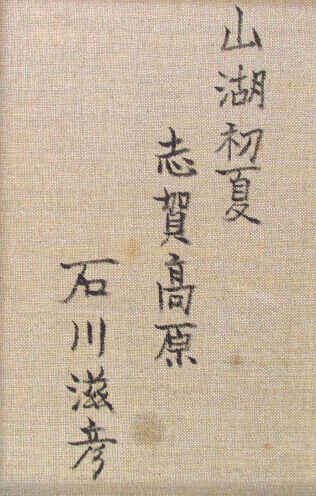 山湖初夏
志賀高原
石川滋彦